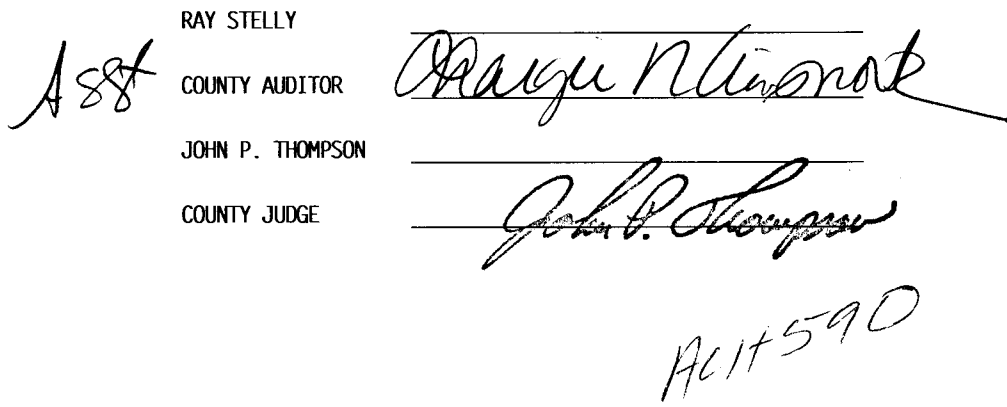 RAY STELLY
Asst COUNTY AUDITOR
JOHN P. THOMPSON
COUNTY JUDGE John P. Thompson
ACH590